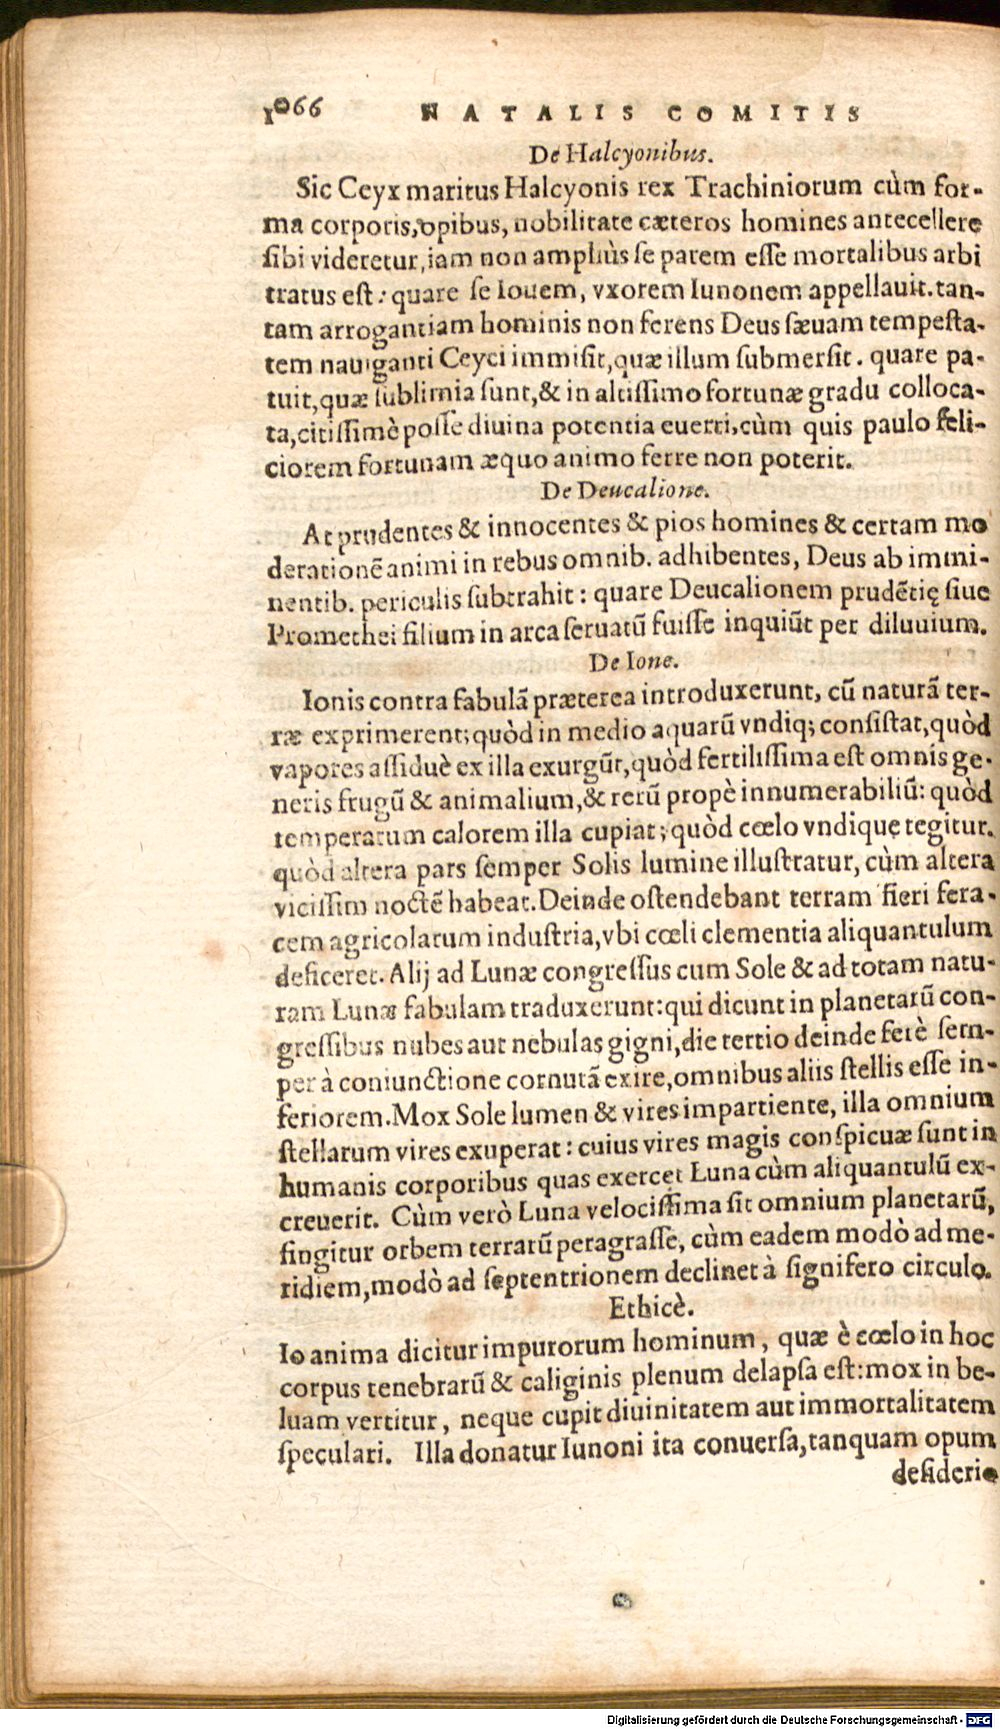 1066 NATALIS COMITIS
De Halcyonibus.
Sic Ceyx maritus Halcyonis rex Trachiniorum cùm for-
ma corporis, opibus, nobilitate cæteros homines antecellere
sibi videretur, iam non ampliùs se parem esse mortalibus arbi
tratus est: quare se Iouem, vxorem Iunonem appellauit. tan-
tam arrogantiam hominis non ferens Deus sæuam tempesta-
tem nauiganti Ceyci immisit, quæ illum submersit. quare pa-
tuit, quæ sublimia sunt, & in altissimo fortunæ gradu colloca-
ta, citissimè posse diuina potentia euerti, cùm quis paulo feli-
ciorem fortunam æquo animo ferre non poterit.
De Deucalione.
At prudentes & innocentes & pios homines & certam mo
derationē animi in rebus omnib. adhibentes, Deus ab immi-
nentib. periculis subtrahit: quare Deucalionem prudētię siue
Promethei filium in arca seruatū fuisse inquiūt per diluuium.
De Ione.
Ionis contra fabulā præterea introduxerunt, cū naturā ter-
ræ exprimerent; quòd in medio aquarū vndiq; consistat, quòd
vapores assiduè ex illa exurgūt, quòd fertilissima est omnis ge-
neris frugū & animalium, & rerū propè innumerabiliū: quòd
temperatum calorem illa cupiat; quòd cœlo vndique tegitur.
quòd altera pars semper Solis lumine illustratur, cùm altera
vicissim noctē habeat. Deinde ostendebant terram fieri fera-
cem agricolarum industria, vbi cœli clementia aliquantulum
deficeret. Alij ad Lunæ congressus cum Sole & ad totam natu-
ram Lunæ fabulam traduxerunt: qui dicunt in planetarū con-
gressibus nubes aut nebulas gigni, die tertio deinde ferè sem-
per à coniunctione cornutā exire, omnibus aliis stellis esse in-
feriorem. Mox Sole lumen & vires impartiente, illa omnium
stellarum vires exuperat: cuius vires magis conspicuæ sunt in
humanis corporibus quas exercet Luna cùm aliquantulū ex-
creuerit. Cùm verò Luna velocissima sit omnium planetarū,
fingitur orbem terrarū peragrasse, cùm eadem modò ad me-
ridiem, modò ad septentrionem declinet à signifero circulo.
Ethicè.
Io anima dicitur impurorum hominum, quæ è cœlo in hoc
corpus tenebrarū & caliginis plenum delapsa est: mox in be-
luam vertitur, neque cupit diuinitatem aut immortalitatem
speculari. Illa donatur Iunoni ita conuersa, tanquam opum
desiderio
Digitalisierung gefördert durch die Deutsche Forschungsgemeinschaft - DFG